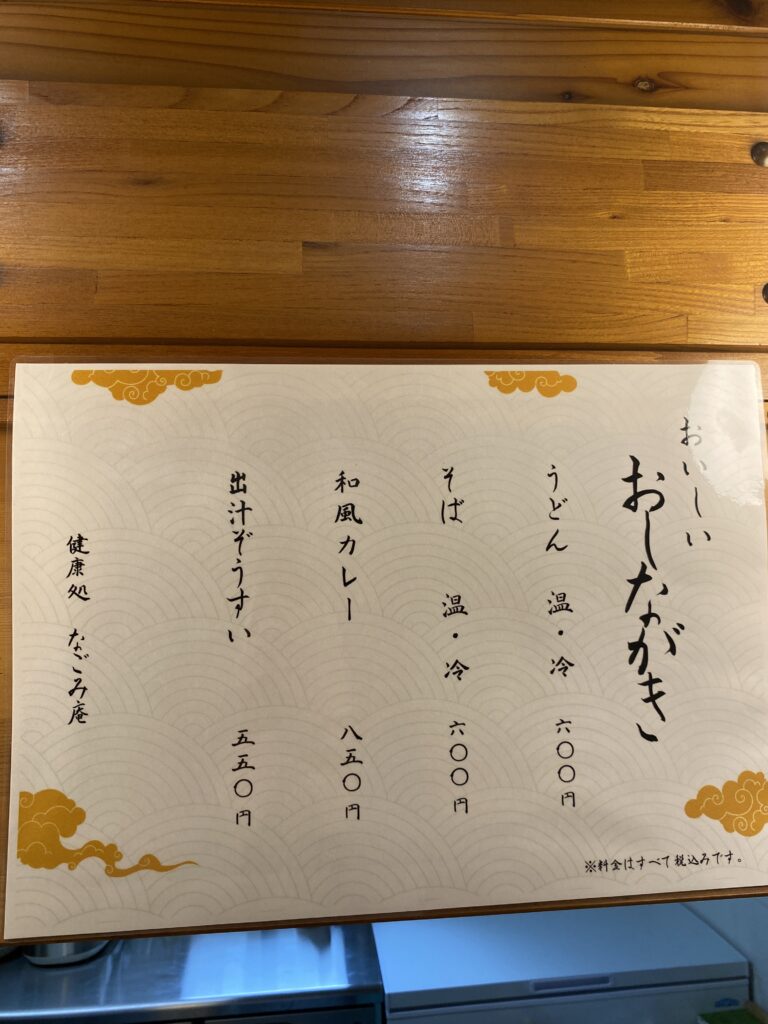 おいしい
おしながき
うどん 温・冷 六〇〇円
そば 温・冷 六〇〇円
和風カレー 八五〇円
出汁ぞうすい 五五〇円
健康処 なごみ庵
※料金はすべて税込みです。